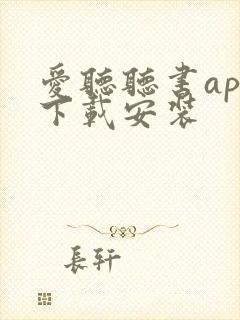 愛聽聽書ap
下載安裝
長軒